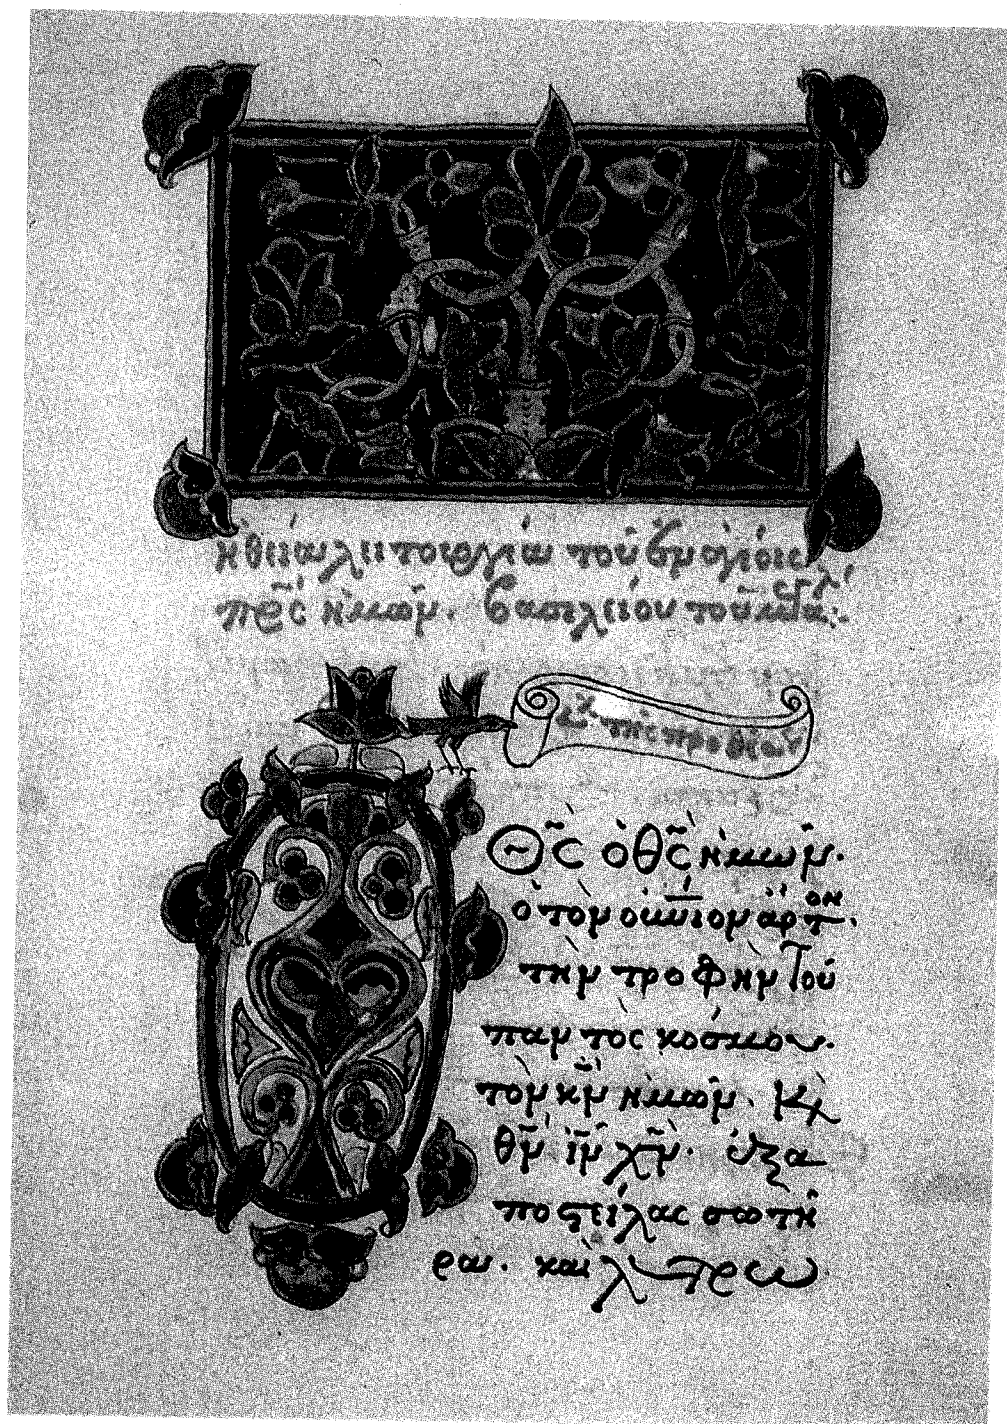 ἡ θεία λειτουργία τοῦ ἐν ἁγίοις
πρ̅ς ἡμῶν. βασιλείου τοῦ μεγά:
εὐχ τῆς προθέσεως
Θ̅ς ὁ θ̅ς ἡμῶν.
ὁ τὸν οὐνιον ἄρτον.
τὴν τροφὴν τοῦ
παντὸς κόσμου.
τὸν κ̅ν ἡμῶν. κὶ
θ̅ν ι̅ν χ̅ν. ἐξα
ποστείλας σωτῆ
ρα. καὶ λυτρω